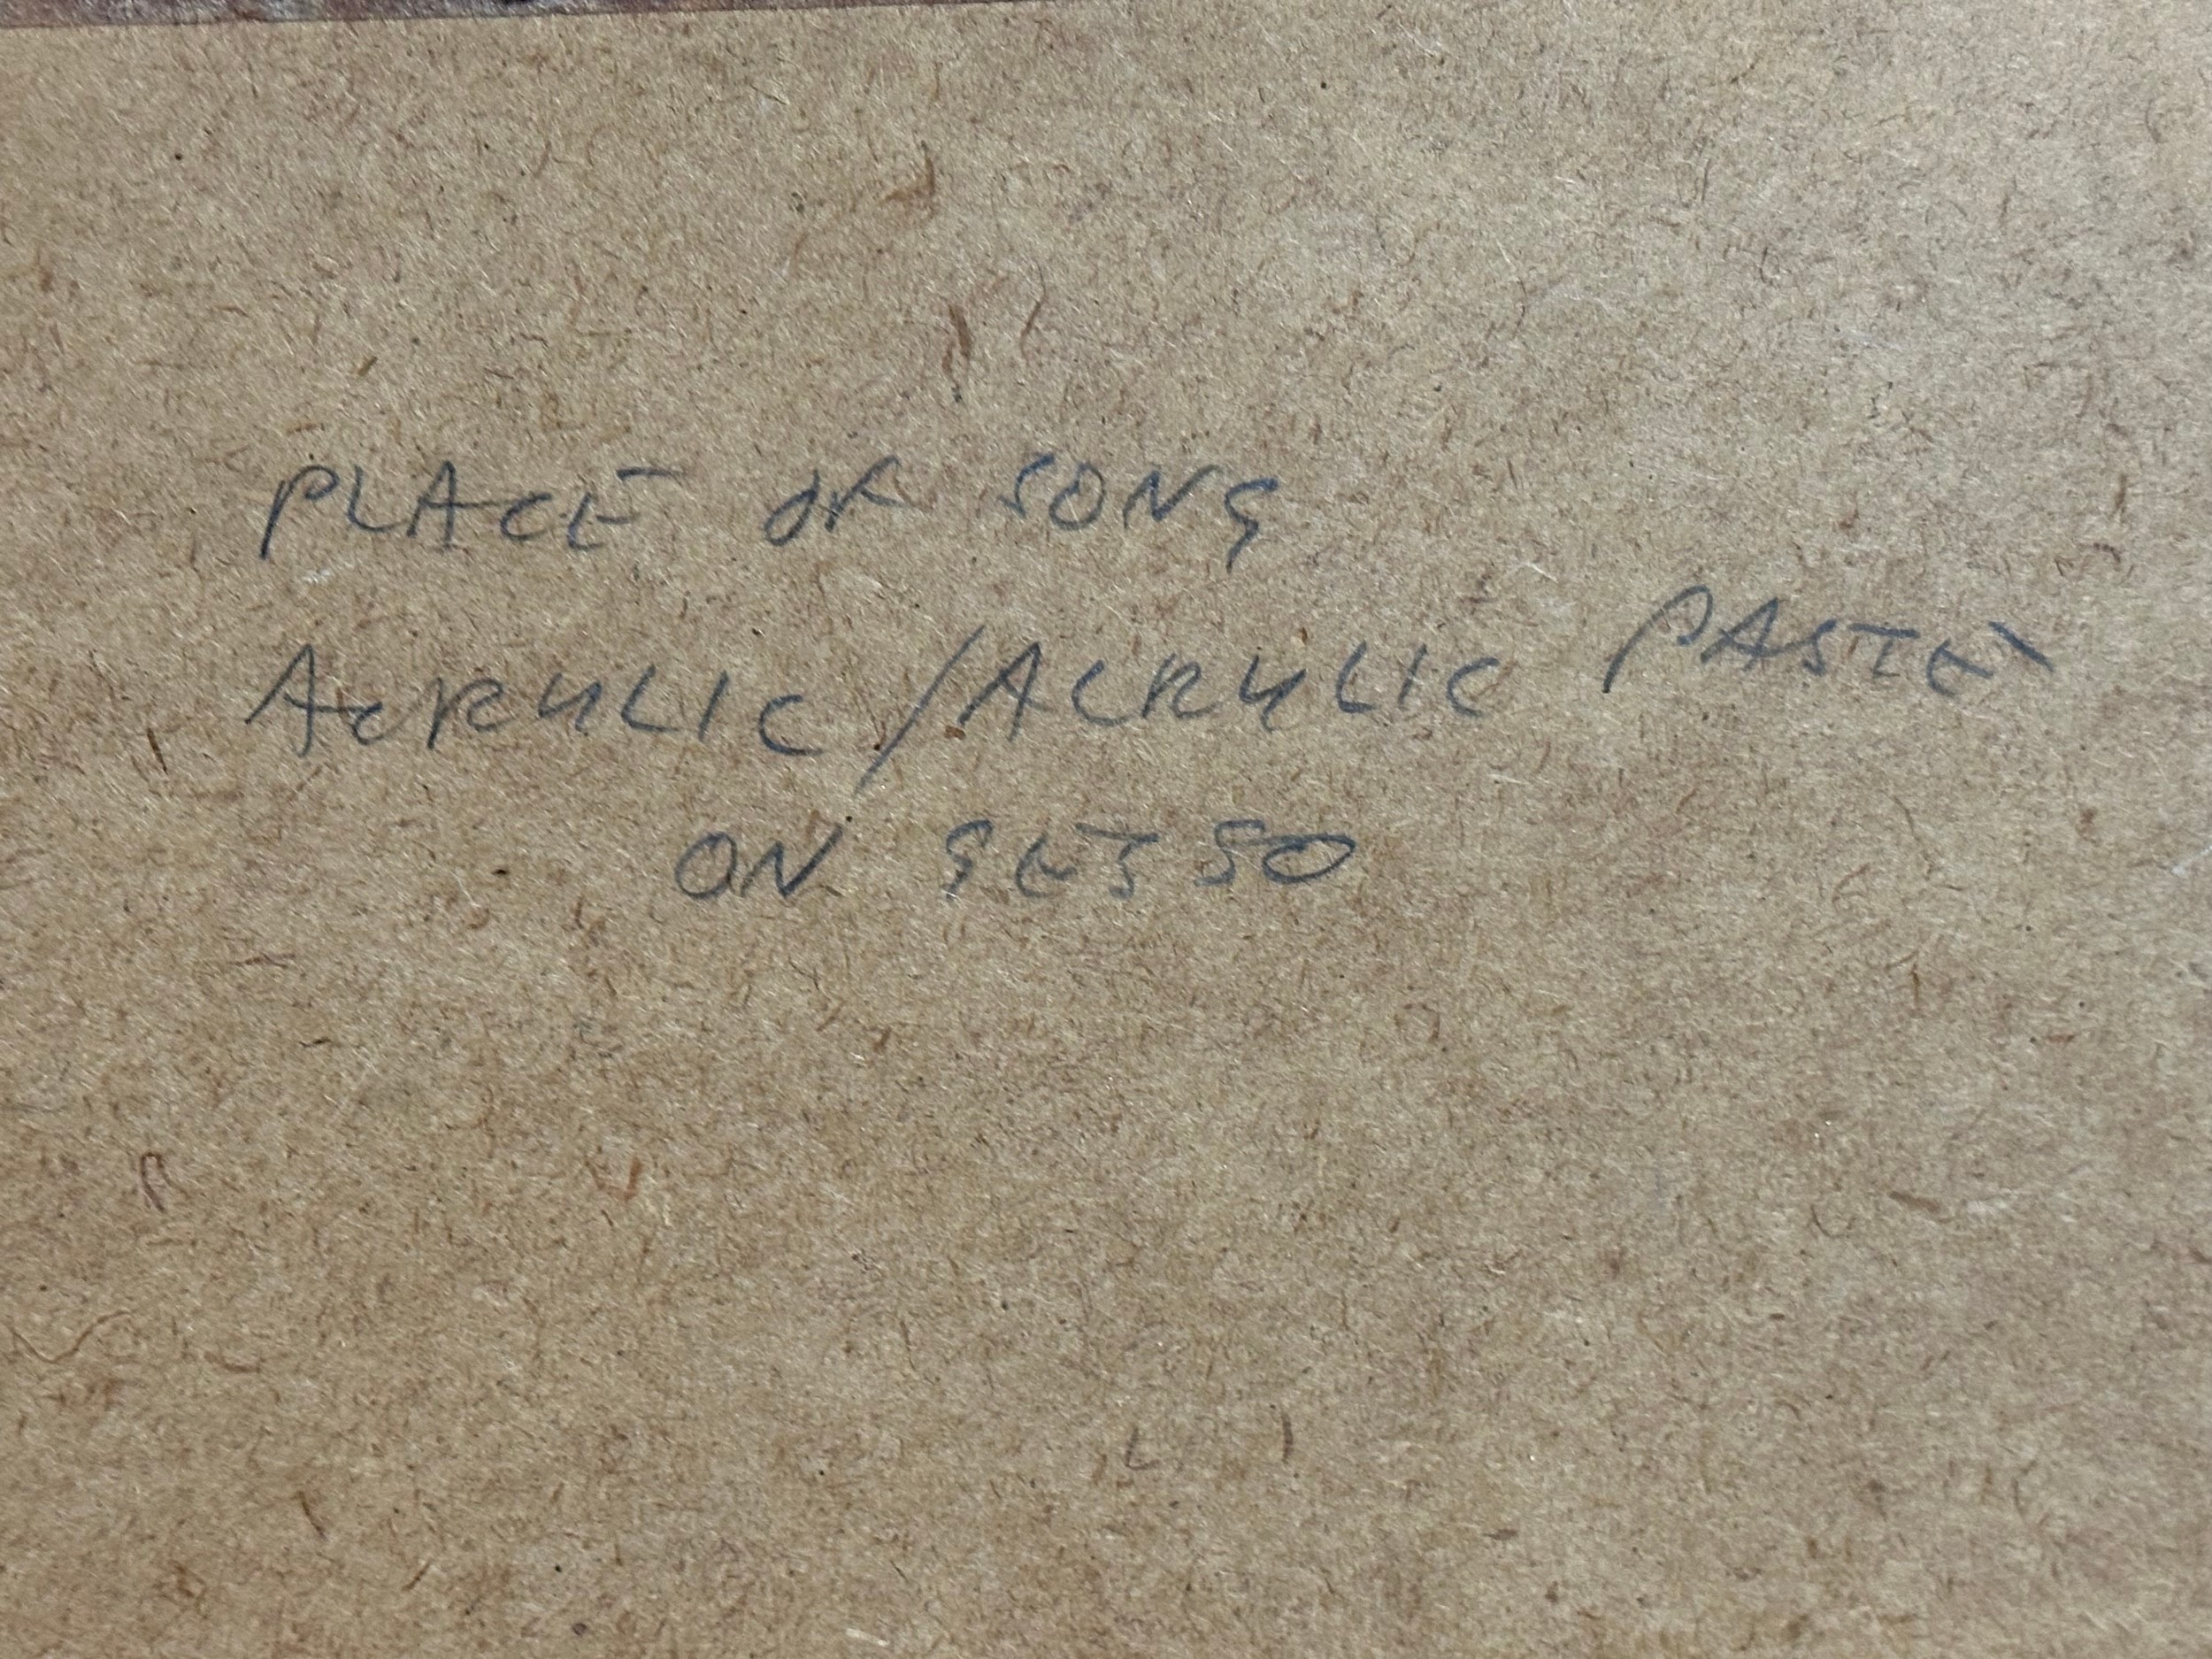 PLACE OF SONG
ACRYLIC/ACRYLIC PASTE
ON GESSO